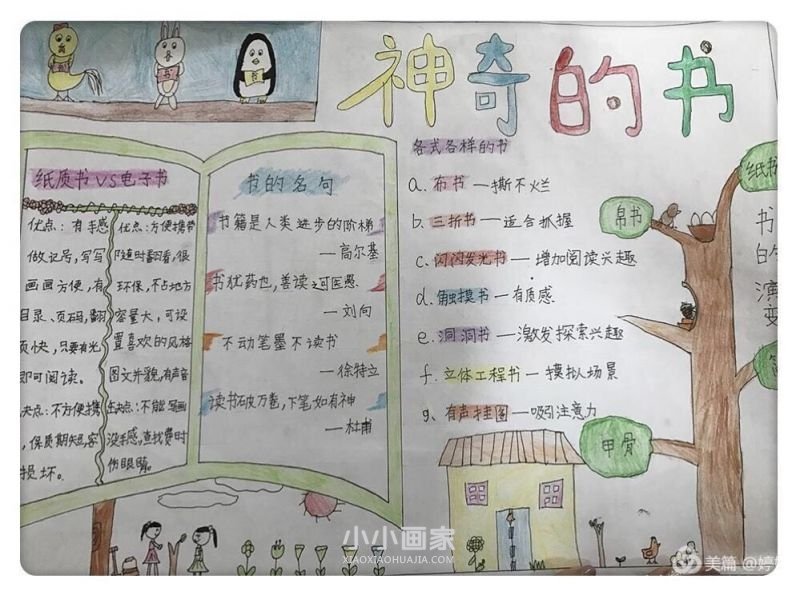 神奇的书
纸质书 VS 电子书
优点：有手感
做记号，写写
画画方便，有
目录、页码，翻
页快，只要有光
即可阅读。
缺点：不方便携
，保质期短，容
损坏。
优点：方便携带
随时翻看，很
环保，不占地方
容量大，可设
置喜欢的风格
图文并貌，有声音
缺点：不能写画
没手感，查找费时
伤眼睛。
书的名句
书籍是人类进步的阶梯
—高尔基
书犹药也，善读之可医愚
—刘向
不动笔墨不读书
—徐特立
读书破万卷，下笔如有神
—杜甫
各式各样的书
a. 布书—撕不烂
b. 三折书—适合抓握
c. 闪闪发光书—增加阅读兴趣
d. 触摸书—有质感
e. 洞洞书—激发探索兴趣
f. 立体工程书—模拟场景
g. 有声挂图—吸引注意力
纸书
帛书
甲骨
书
的
演
变
小小画家
XIAOXIAOHUAJIA.COM
美篇 @婷